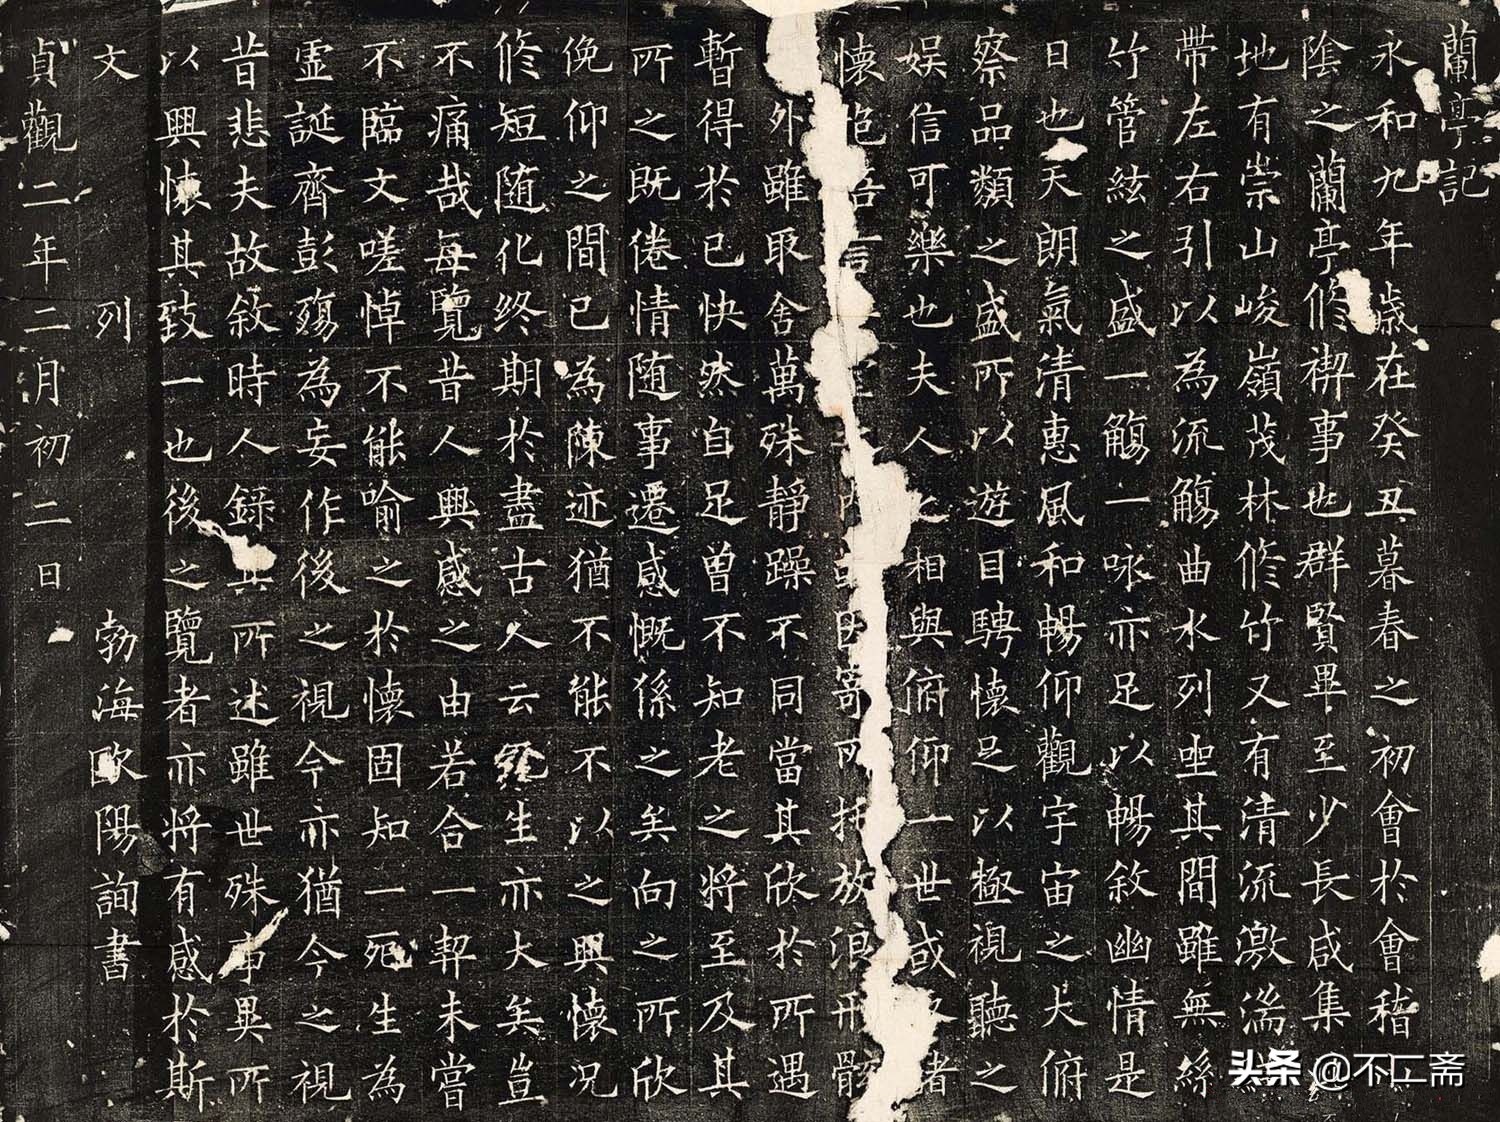 蘭亭記
永和九年歲在癸丑暮春之初會於會稽
陰之蘭亭修禊事也群賢畢至少長咸集
地有崇山峻嶺茂林修竹又有清流激湍
帶左右引以為流觴曲水列坐其間雖無絲
竹管絃之盛一觴一咏亦足以暢敘幽情是
日也天朗氣清惠風和暢仰觀宇宙之大俯
察品類之盛所以遊目騁懷足以極視聽之
娱信可樂也夫人之相與俯仰一世或取諸
懷抱言因寄所托放浪形骸
外雖取舍萬殊靜躁不同當其欣於所遇
暫得於已快然自足曾不知老之將至及其
所之既倦情随事遷感慨係之矣向之所欣
俛仰之間已為陳迹猶不能不以之興懷況
修短随化终期於盡古人云死生亦大矣豈
不痛哉每覽昔人興感之由若合一契未嘗
不臨文嗟悼不能喻之於懷固知一死生為
虛誕齊彭殤為妄作後之視今亦猶今之視
昔悲夫故敘時人錄其所述雖世殊事異所
以興懷其致一也後之覽者亦將有感於斯
文 列 勃海歐陽詢書
貞觀二年二月初二日
头条@不二斋